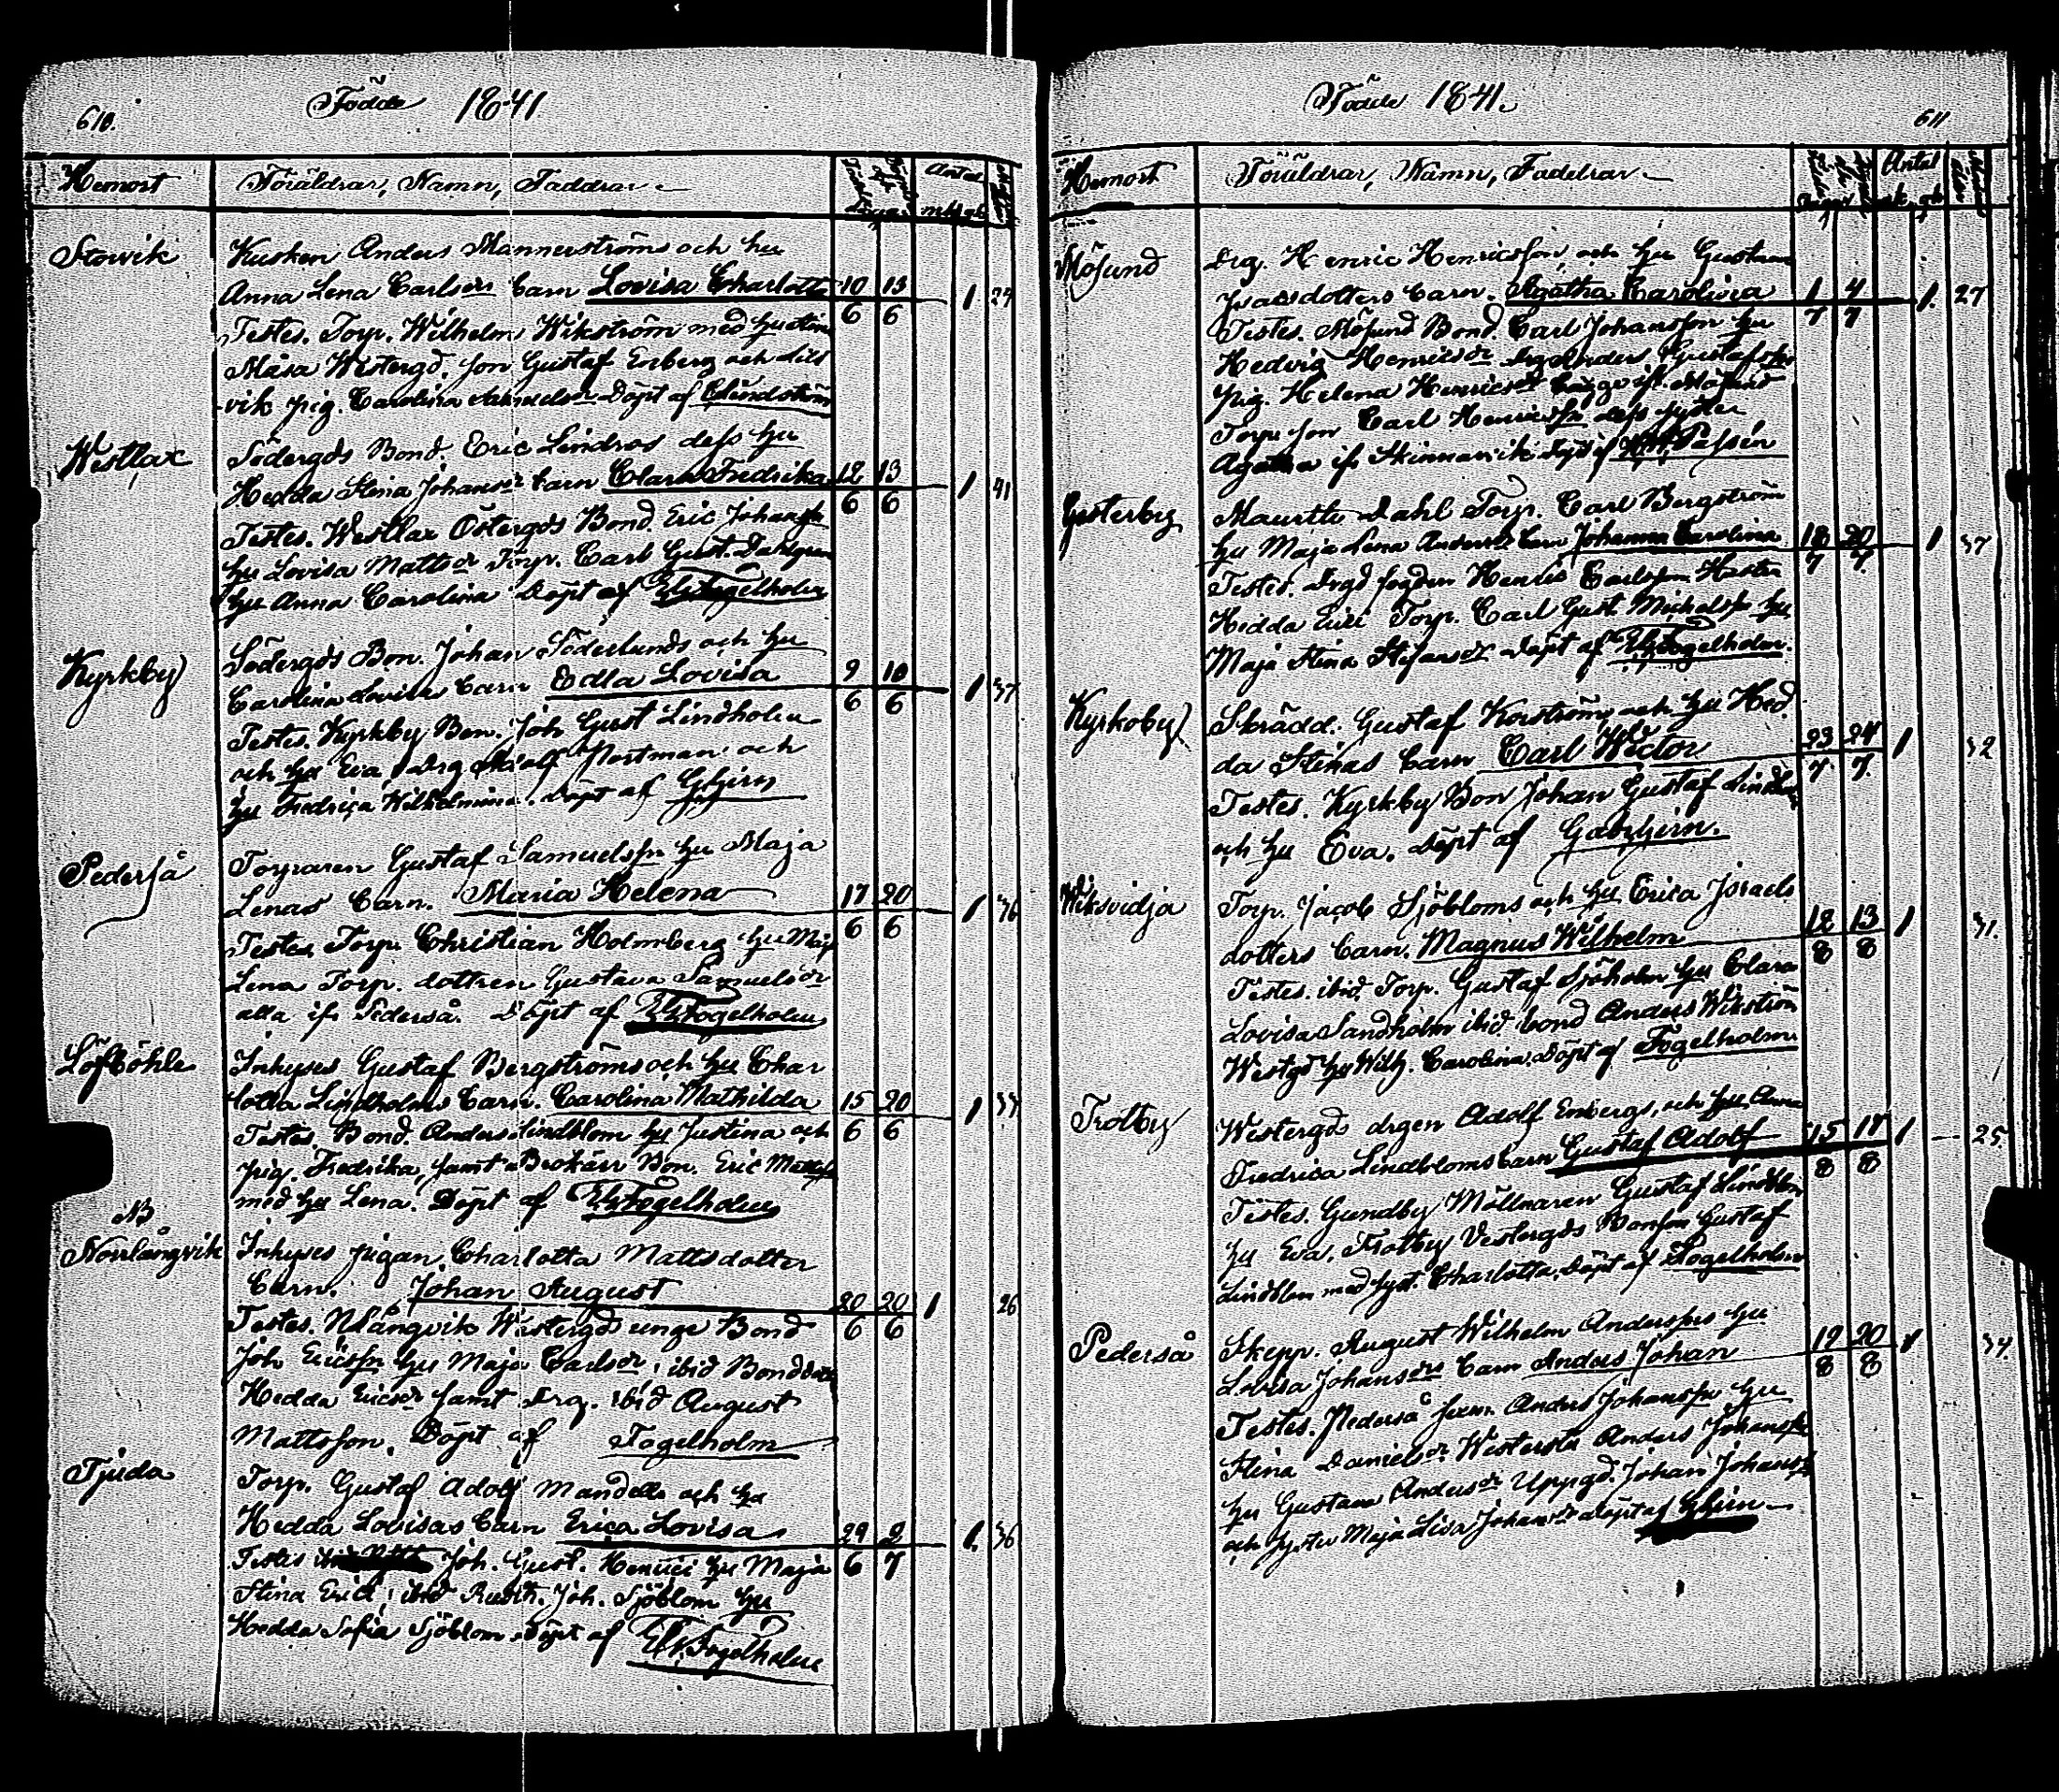 610.
Födde 1841.
Hemort
Föräldrar, Namn, Faddrar
Dagar
Antal
mk qk
Storvik
Kusken Anders Mannerströms och hu
Anna Lena Carlsdrs barn Lovisa Charlotta 10 13 1 29
Testes. Torp. Wilhelm Wikström med hustru 6 6
Måsa Westergd. son Gustaf Enberg och
vik pig. Carolina Döpt af Lindström
Westlax
Södergds Bond. Eric Lindros dess hu
Hedda Stina Johansdr barn Clara Fredrika 12 13 1 41
Testes. Westlax Östergds Bond. Eric Johanss 6 6
hu Lovisa Mattsdr Torp. Carl Gust. Dahlgren
hu Anna Carolina Döpt af Fogelholm
Kyrkby
Södergds Bon. Johan Söderlunds och hu
Carolina Lovisa barn Edla Lovisa 9 10 1 37
Testes. Kyrkby Bon. Joh Gust Lindholm 6 6
och hu Eva, Drg Adolf Nortman och
hu Fredrica Wilhelmina. Döpt af GHjirn
Pederså
Torparen Gustaf Samuelssn hu Maja
Lenas barn. Maria Helena 17 20 1 36
Testes Torp. Christian Holmberg hu Maja 6 6
Lena Torp. dottren Gustava Samuelsdr
alla ifr Pederså. Döpt af Fogelholm
Löfböhle
Inhyses Gustaf Bergströms och hu Char
lotta Lindholms barn. Carolina Mathilda 15 20 1
Testes. Bond. Anders Lindblom hu Justina och 6 6
pig. Fredrika, samt Brokärr Bon. Eric Mattss
med hu Lena. Döpt af Fogelholm
NB
Norrlångvik
Inhyses pigan Charlotta Mattsdotter
barn. Johan August 20 20 1 26
Testes. NLångvik Westergd unge Bond 6 6
Joh Ericssn hu Maja Carlsdr, ibid Bonddott
Hedda Ericsdr samt Drg. ibid August
Mattsson. Döpt af Fogelholm
Tjuda
Torp. Gustaf Adolf Mandells och hu
Hedda Lovisas barn Erica Lovisa 29 2 1 36
Testes Joh. Gust. Henrici hu Maja 6 7
Stina Erici, ibid Rusth. Joh. Sjöblom hu
Hedda Sofia Sjöblom Döpt af Fogelholm
Födde 1841.
611
Hemort
Föräldrar, Namn, Faddrar
Antal
mk qk
Mösund
Drg. Henric Henricsson och hu Gustava
Isacsdotters barn. Agatha Carolina 1 4 1 27
Testes. Mösund Bond. Carl Johansson hu 7 7
Hedvig Henricsdr drg Anders Gustafssn
pig. Helena Henricsdr ifr Mösund
Torp. son Carl Henricssn dess syster
Agatha ifr Skinnarvik Döpt af Passén
Gesterby
Dahl Torp. Carl Bergström
hu Maja Lena Andersdr barn Johanna Carolina 18 20 1 37
Testes. Drgd fogden Henric Carlsson Hustru 7 7
Hedda Torp. Carl Gust. Michelss hu
Maja Stina Stefansdr Döpt af Fogelholm.
Kyrkoby
Skrädd. Gustaf Korström och hu Hed
da Stinas barn Carl Wictor 23 24 1 32
Testes. Kyrkby Bon Johan Gustaf Lindholm 7 7
och hu Eva. Döpt af GabHjirn.
Wiksvidja
Torp. Jacob Sjöbloms och hu Erica Israels
dotters barn. Magnus Wilhelm 12 13 1 31.
Testes. ibid Torp. Gustaf Sjöholm hu Clara 8 8
Lovisa Sandholm ibid bond Anders Wikström
Westgd hu Wilh. Carolina Döpt af Fogelholm
Trotby
Westergds drgen Adolf Enbergs, och hu Anna
Fredrica Lindbloms barn Gustaf Adolf 15 18 1 — 25
Testes. Gundby Möllnaren Gustaf Lindblom 8 8
hu Eva. Trotby Vestergds Bonson Gustaf
Lindblom med syst. Charlotta. Döpt af Fogelholm
Pederså
Skepp. August Wilhelm Anderssns hu
Lovisa Johansdrs barn Anders Johan 19 20 1 34.
Testes. Pederså sexm. Anders Johanssn hu 8 8
Stina Danielsdr Westersta Anders Johanssn
hu Gustava Andersdr Uppgd. Johan Johanss
och syster Maja Lisa Johansdr döpt af GHjirn